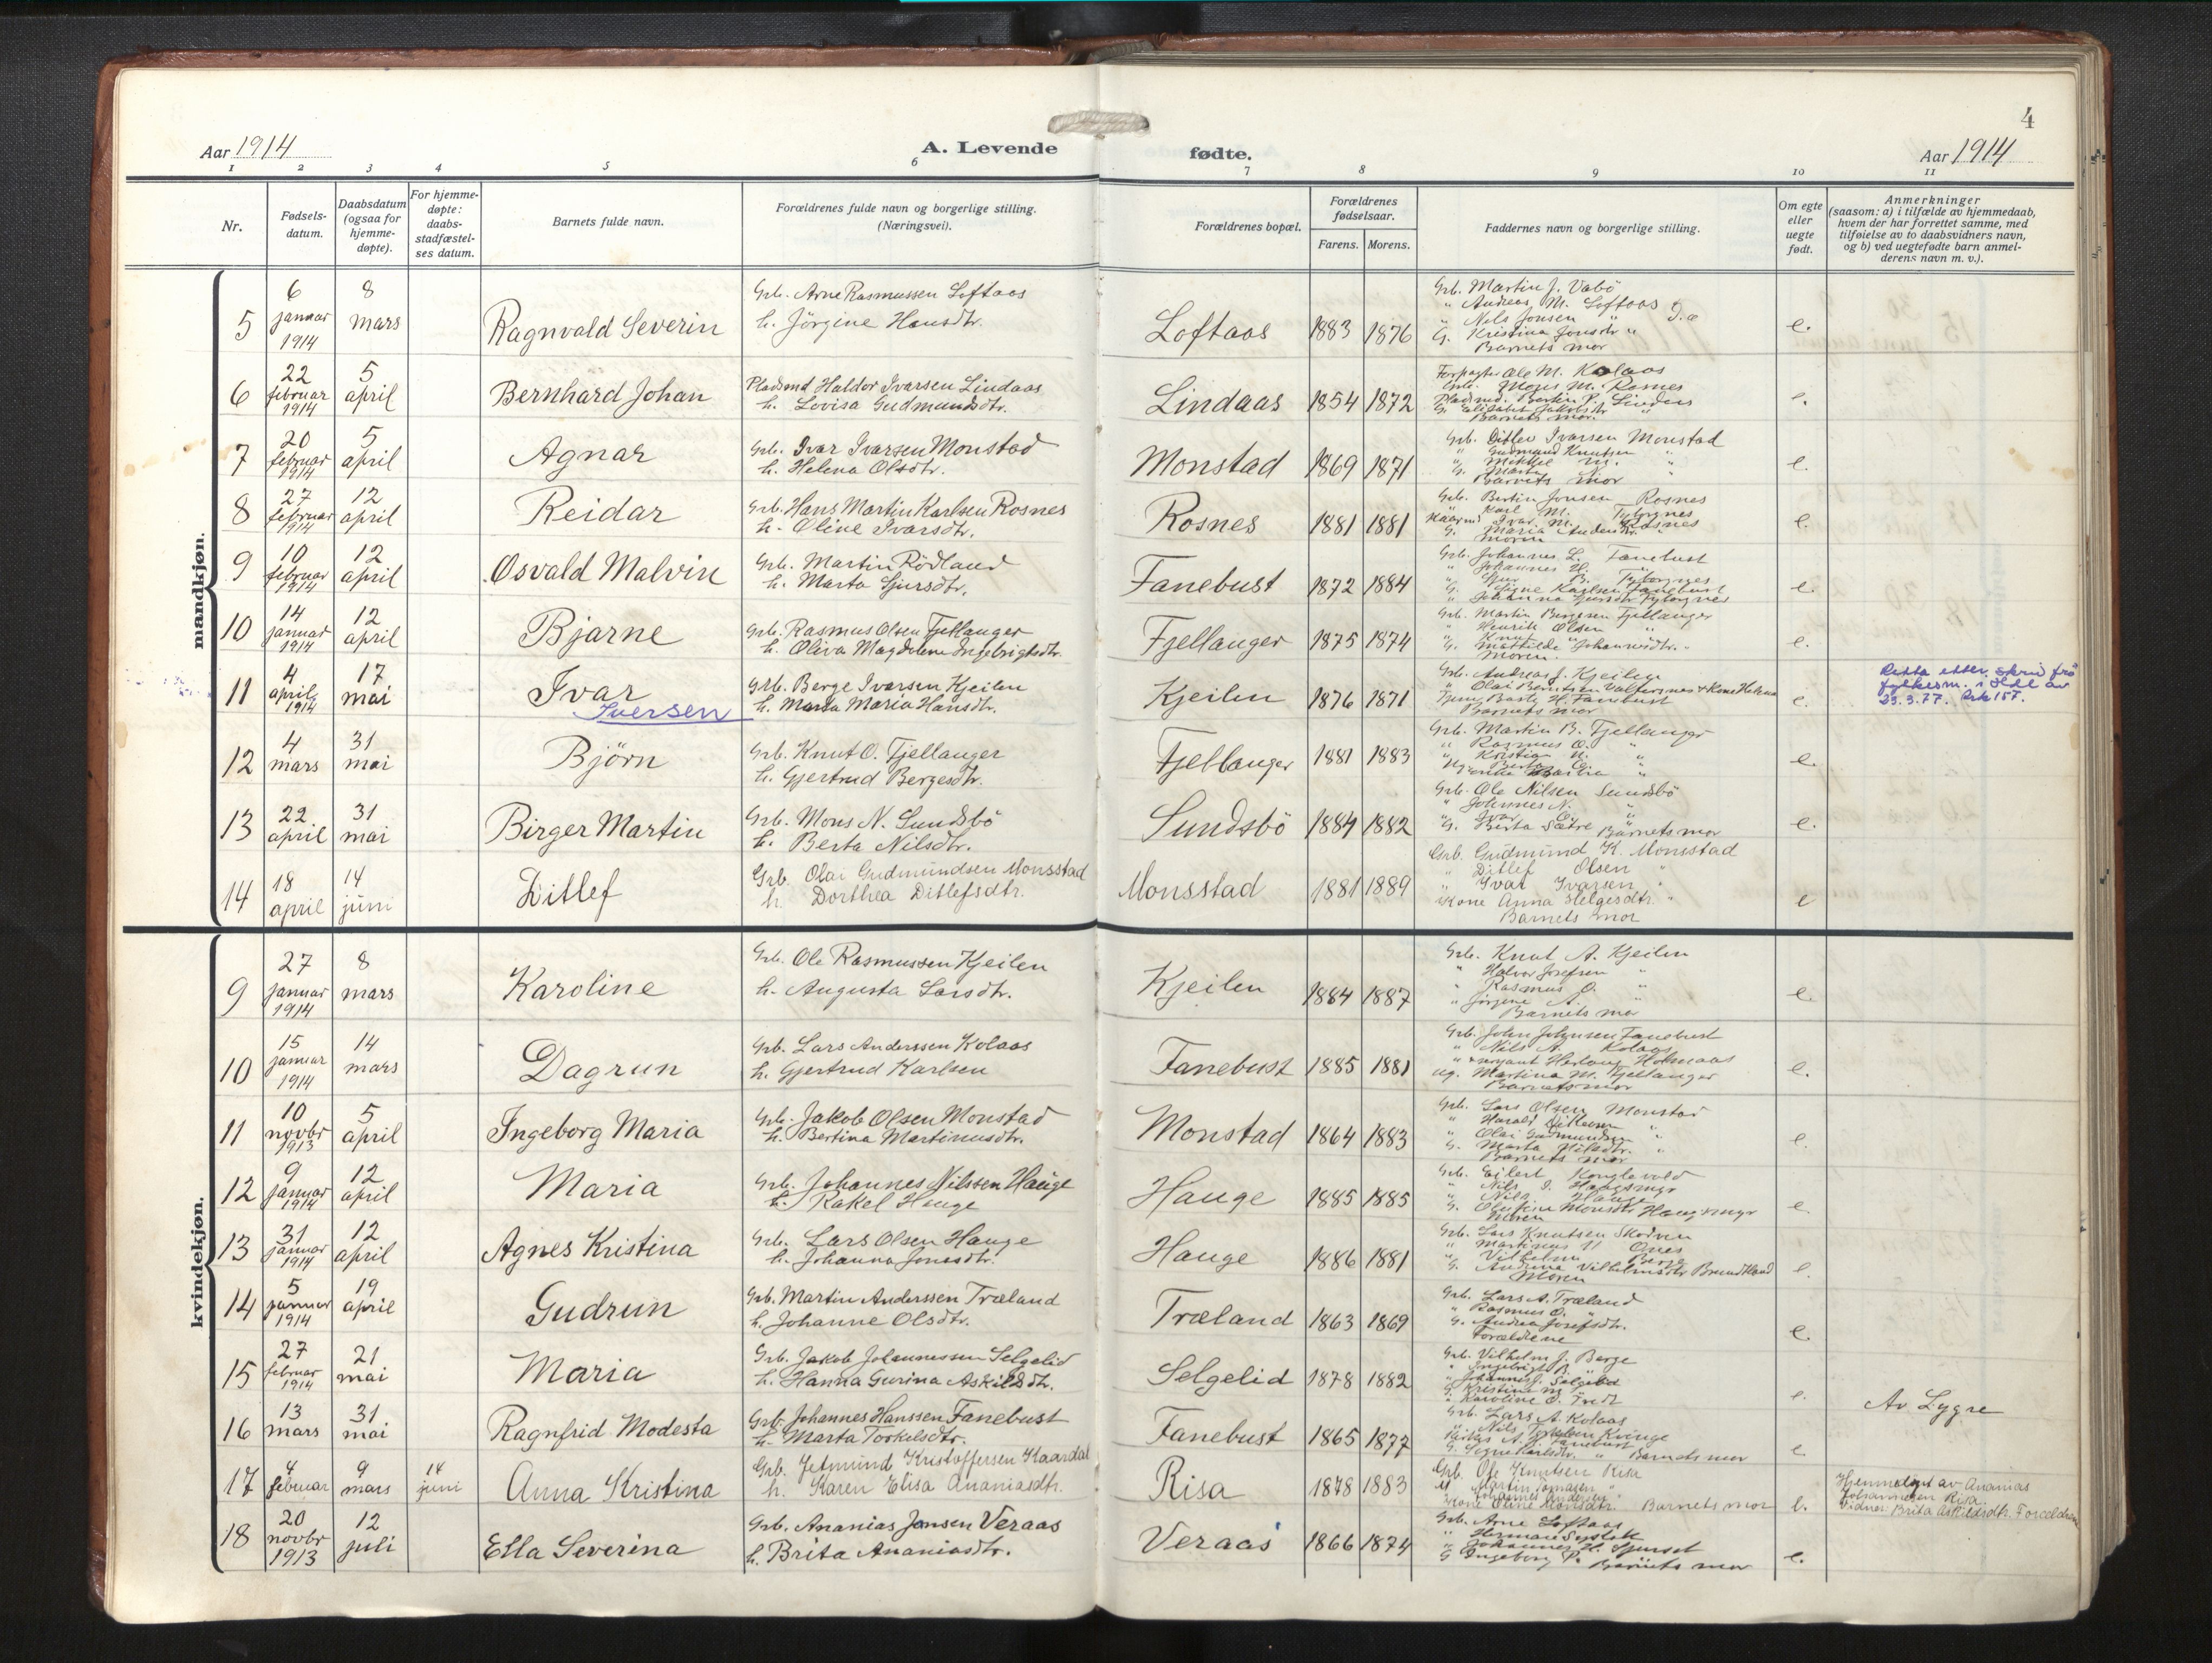 4
Aar 1914
A. Levende
fødte.
Aar 1914
1 2 3 4 5 6 7 8 9 10 11
Nr.
Fødsels-
datum.
Daabsdatum
(ogsaa for
hjemme-
døpte).
For hjemme-
døpte:
daabs-
stadfæstel-
ses datum.
Barnets fulde navn.
Forældrenes fulde navn og borgerlige stilling.
(Næringsvei).
Forældrenes bopæl.
Forældrenes
fødselsaar.
Farens. Morens.
Faddernes navn og borgerlige stilling.
Om egte
eller
uegte
født.
Anmerkninger
(saasom: a) i tilfælde av hjemmedaab,
hvem der har forrettet samme, med
tilføielse av to daabsvidners navn,
og b) ved uegtefødte barn anmel-
derens navn m. v.).
mandkjøn.
5
6
januar
1914
8
mars
Ragnvald Severin
Grb. Arne Rasmussen Loftaas
h. Jörgine Hansdtr.
Loftaas 1883 1876
Grb. Martin J. Vabö
" Andreas M. Loftaas
" Nils Jonsen "
G. Kristina Jonsdtr "
Barnets mor
e.
6
22
februar
1914
5
april
Bernhard Johan
Pladsmd Haldor Ivarsen Lindaas
h. Lovisa Gudmundsdtr.
Lindaas 1854 1872
Forpagter Ole M. Kolaas
Grb. Mons M. Rosnes
Pladsmd. Bertin P. Lindaas
G. Elisabet Jakobsdtr "
Barnets mor.
e.
7
20
februar
1914
5
april
Agnar
Grb. Ivar Ivarsen Monstad
h. Helena Olsdtr.
Monstad 1869 1871
Grb. Ditlev Ivarsen Monstad
" Gudmund Knutsen "
" Mikkel M. "
Barnets mor
e.
8
27
februar
1914
12
april
Reidar
Grb. Hans Martin Karlsen Rosnes
h. Oline Ivarsdtr.
Rosnes 1881 1881
Grb. Bertin Jonsen Rosnes
" Karl M.
Ivar M. Rosnes
G. Maria
Moren
e.
9
10
februar
1914
12
april
Osvald Malvin
Grb. Martin Rödland
h. Marta Sjursdtr.
Fanebust 1872 1884
Grb. Johannes L. Fanebust
" Johannes H. "
" Sjur B.
G. Signe Karlsen Fanebust
" Johanna
e.
10
14
januar
1914
12
april
Bjarne
Grb. Rasmus Olsen Fjellanger
h. Oliva Magdelene Ingebrigtsdtr.
Fjellanger 1875 1874
Grb. Martin Bergesen Fjellanger
" Henrik Olsen "
" Knut "
G. Mathilde Johannesdtr. "
Moren.
e.
11
4
april
1914
17
mai
Ivar
Iversen
Grb. Berge Ivarsen Kjeilen
h. Marta Maria Hansdtr.
Kjeilen 1876 1871
Grb. Andreas J. Kjeilen
" Olai Berntsen Valfersnes + Kone Helena
H. Fanebust
Barnets mor
e.
Retta etter skriv frå
fylkesm. i Hdl av
23.3.77. Ark 157.
12
4
mars
31
mai
Björn
Grb. Knut O. Fjellanger
h. Gjertrud Bergesdtr.
Fjellanger 1881 1883
Grb. Martin B. Fjellanger
" Rasmus O. "
" Kristian N. "
e.
13
22
april
31
mai
Birger Martin
Grb. Mons N. Sundsbö
h. Berta Nilsdtr.
Sundsbö 1884 1882
Grb. Ole Nilsen Sundsbö
" Johannes N. "
" Ivar O. "
G. Berta Sætre Barnets mor
e.
14
18
april
14
juni
Ditlef
Grb. Olai Gudmundsen Monsstad
h. Dorthea Ditlefsdtr.
Monsstad 1881 1889
Grb. Gudmund K. Monsstad
" Ditlef Olsen "
" Ivar Ivarsen "
Kone Anna Helgesdtr. "
Barnets mor
e
kvindekjøn.
9
27
januar
1914
8
mars
Karoline
Grb. Ole Rasmussen Kjeilen
h. Augusta Larsdtr.
Kjeilen 1884 1887
Grb. Knut A. Kjeilen
" Halvor Josefsen "
" Rasmus O. "
" Jörgine A. "
Barnets mor
e.
10
15
januar
1914
14
mars
Dagrun
Grb. Lars Anderssen Kolaas
h. Gjertrud Karlsen
Fanebust 1885 1881
Grb. John Johnsen Fanebust
" Nils A. Kolaas
Ug. Martina M. Fjellanger
Barnets mor
e.
11
10
novbr
1913
5
april
Ingeborg Maria
Grb. Jakob Olsen Monstad
h. Bertina Martinusdtr.
Monstad 1864 1883
Grb. Lars Olsen Monstad
" Harald Ditlevsen "
" Olai Gudmundsen "
G. Marta Nilsdtr. "
Barnets mor
e.
12
9
januar
1914
12
april
Maria
Grb. Johannes Nilssen Hauge
h. Rakel Hauge
Hauge 1885 1885
Grb. Eilert Konglevold
" Nils J. Haugsmyr
" Nils Hauge
G. Monsdtr Haugsmyr
Moren
e.
13
31
januar
1914
12
april
Agnes Kristina
Grb. Lars Olsen Hauge
h. Johanna Jonsdtr.
Hauge 1886 1881
Grb. Lars Knutsen Skodven
" Martinus
" Vilhelm Berge
G. Andrina Vilhelmsdtr
Moren
e.
14
5
januar
1914
19
april
Gudrun
Grb. Martin Anderssen Træland
h. Johanne Olsdtr.
Træland 1863 1869
Grb. Lars A. Træland
" Rasmus O. "
G. Andrea Josefsdtr.
Forældrene
e.
15
27
februar
1914
21
mai
Maria
Grb. Jakob Johannessen Selgelid
h. Hanna Gurina Askildsdtr.
Selgelid 1878 1882
Grb. Vilhelm J. Berge
" Ingebrigt B. "
" Johannes J. Selgelid
G. Kristina M.
" Karoline O.
e.
16
13
mars
31
mai
Ragnfrid Modesta
Grb. Johannes Hanssen Fanebust
h. Marta Torkelsdtr.
Fanebust 1865 1877
Grb. Lars A. Kolaas
" Nils Torkelsen Kvinge
G. Signe Karlsdtr. " Barnets mor
e.
Av Lygre
17
4
februar
9
mars
14
juni
Anna Kristina
Grb. Jetmund Kristoffersen Kaardal
h. Karen Elisa Ananiasdtr.
Risa 1878 1883
Grb. Ole Knutsen Risa
" Martin Tomasen "
" Johannes Andersen "
Kone Oline Hansdtr. Barnets mor
e.
Hjemmedøpt av Ananias
Johannesen Risa.
Vidner: Brita Askildsdtr. Forældrene
18
20
novbr
1913
12
juli
Ella Severina
Grb. Ananias Jonsen Veraas
h. Brita Ananiasdtr.
Veraas 1866 1874
Grb. Arne Loftaas
" Herman
" Johannes H.
G. Ingeborg P. Barnets mor
e.